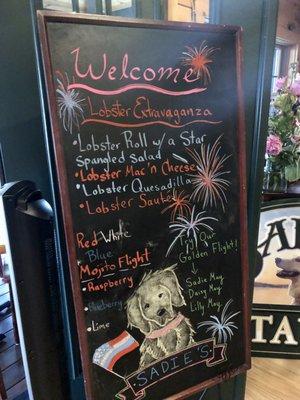 Welcome
Lobster Extravaganza
• Lobster Roll w/a Star
Spangled salad
• Lobster Mac 'n Cheese
• Lobster Quesadilla
• Lobster Sauté
Red White
Blue
Mojito Flight
• Raspberry
• Blueberry
• Lime
Try Our
Golden Flight!
Sadie May
Daisy May
Lilly May
SADIE'S
TA